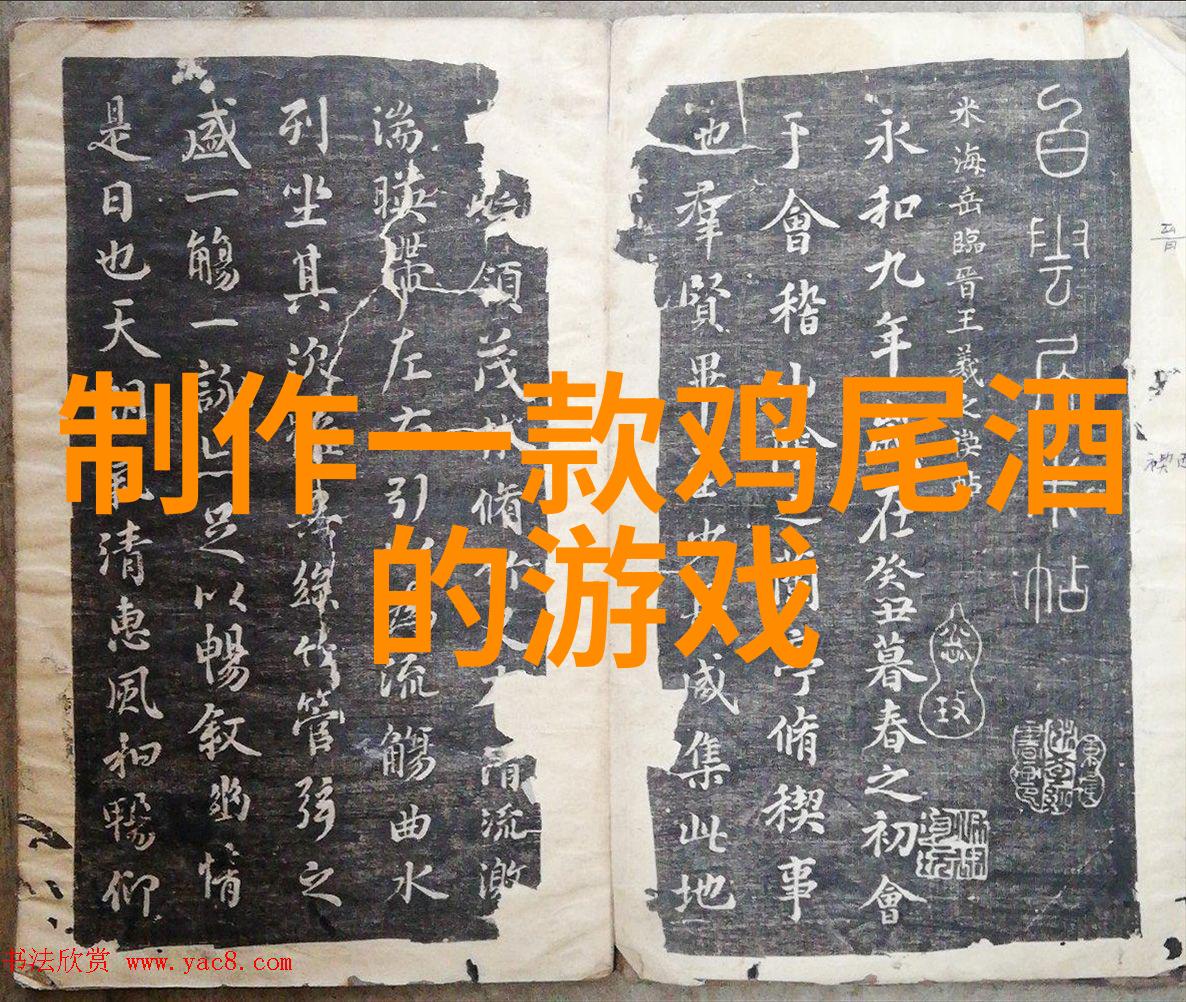 制作一款鸡尾酒
的游戏
白雲居米帖
米海岳臨晉王羲之禊帖
永和九年歲在癸丑暮春之初會
于會稽山陰之蘭亭脩稧事
也羣賢畢至少長咸集此地
領茂林脩竹又有清流激
湍暎帶左右引以為流觴曲水
列坐其次雖無絲竹管弦之
盛一觴一詠亦足以暢叙幽情
是日也天朗氣清惠風和暢仰
书法欣赏 www.yac8.com